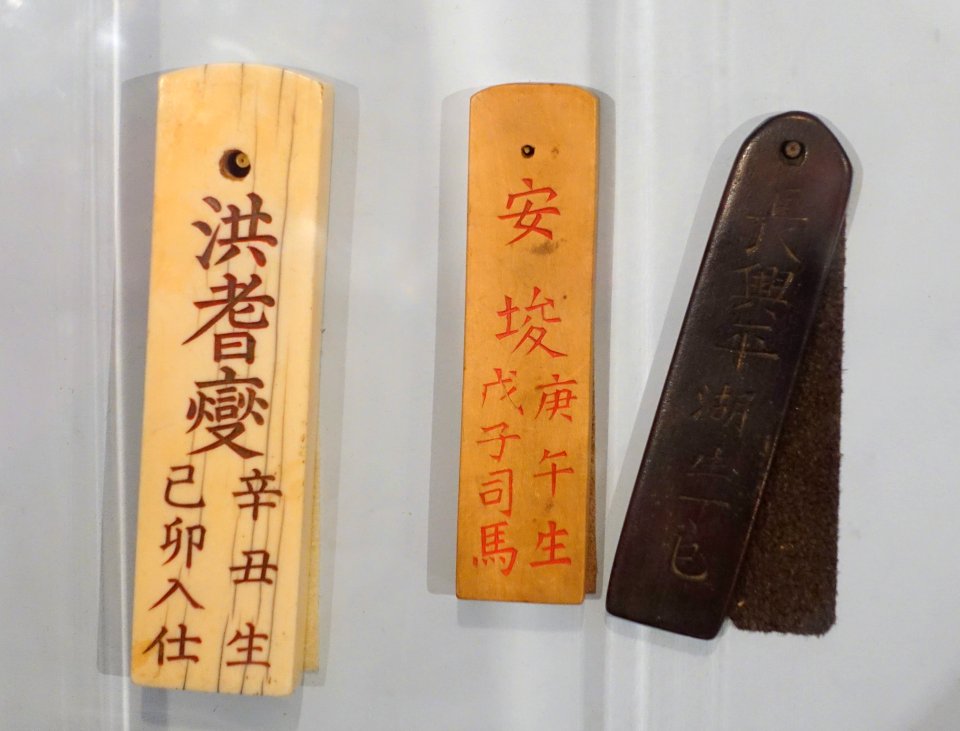 洪耆燮
辛丑生
己卯入仕
安埈
庚午生
戊子司馬
興平湖生丁巳